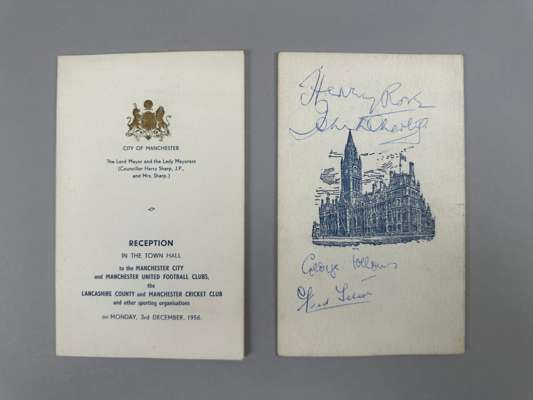 CITY OF MANCHESTER
The Lord Mayor and the Lady Mayoress
(Councillor Harry Sharp, J.P.,
and Mrs. Sharp.)
RECEPTION
IN THE TOWN HALL
to the MANCHESTER CITY
and MANCHESTER UNITED FOOTBALL CLUBS,
the
LANCASHIRE COUNTY and MANCHESTER CRICKET CLUB
and other sporting organisations
on MONDAY, 3rd DECEMBER, 1956.
Henry Rose
George Follows